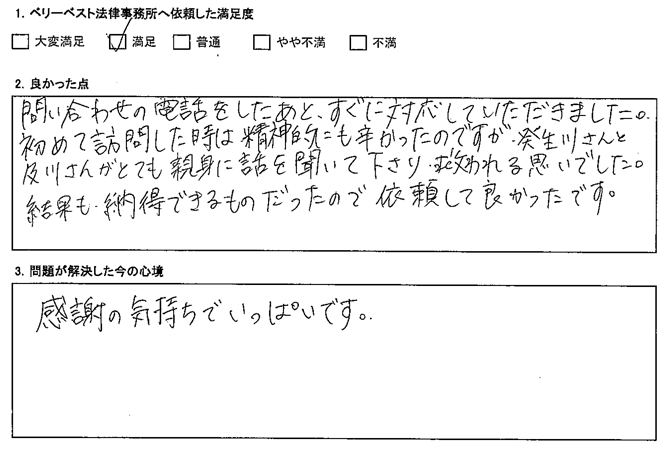 1. ベリーベスト法律事務所へ依頼した満足度
□ 大変満足 ☑ 満足 □ 普通 □ やや不満 □ 不満
2. 良かった点
問い合わせの電話をしたあと、すぐに対応していただきました。
初めて訪問した時は精神的にも辛かったのですが、癸生川さんと
及川さんがとても親身に話を聞いて下さり、救われる思いでした。
結果も、納得できるものだったので依頼して良かったです。
3. 問題が解決した今の心境
感謝の気持ちでいっぱいです。